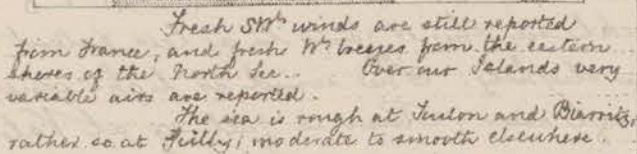 Fresh SWly winds are still reported
from France, and fresh Wly breezes from the eastern
shores of the North Sea.. Over our Islands very
variable airs are reported.
The sea is rough at Toulon and Biarritz,
rather so at Scilly; moderate to smooth elsewhere.